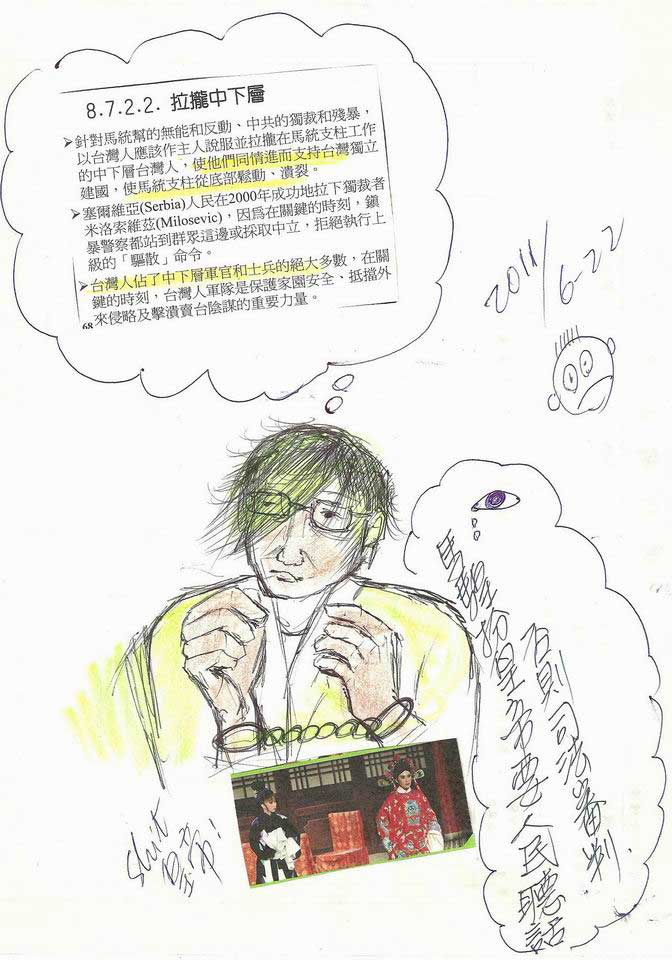 8.7.2.2. 拉攏中下層
➢針對馬統幫的無能和反動、中共的獨裁和殘暴，
以台灣人應該作主人說服並拉攏在馬統支柱工作
的中下層台灣人，使他們同情進而支持台灣獨立
建國，使馬統支柱從底部鬆動、潰裂。
➢塞爾維亞(Serbia)人民在2000年成功地拉下獨裁者
米洛索維茲(Milosevic)，因為在關鍵的時刻，鎮
暴警察都站到群眾這邊或採取中立，拒絕執行上
級的「驅散」命令。
➢台灣人佔了中下層軍官和士兵的絕大多數，在關
鍵的時刻，台灣人軍隊是保護家園安全、抵擋外
來侵略及擊潰賣台陰謀的重要力量。
68
2011/
6-22
馬騜扮皇帝要人民聽話
否則司法審判
Shit
皇帝!